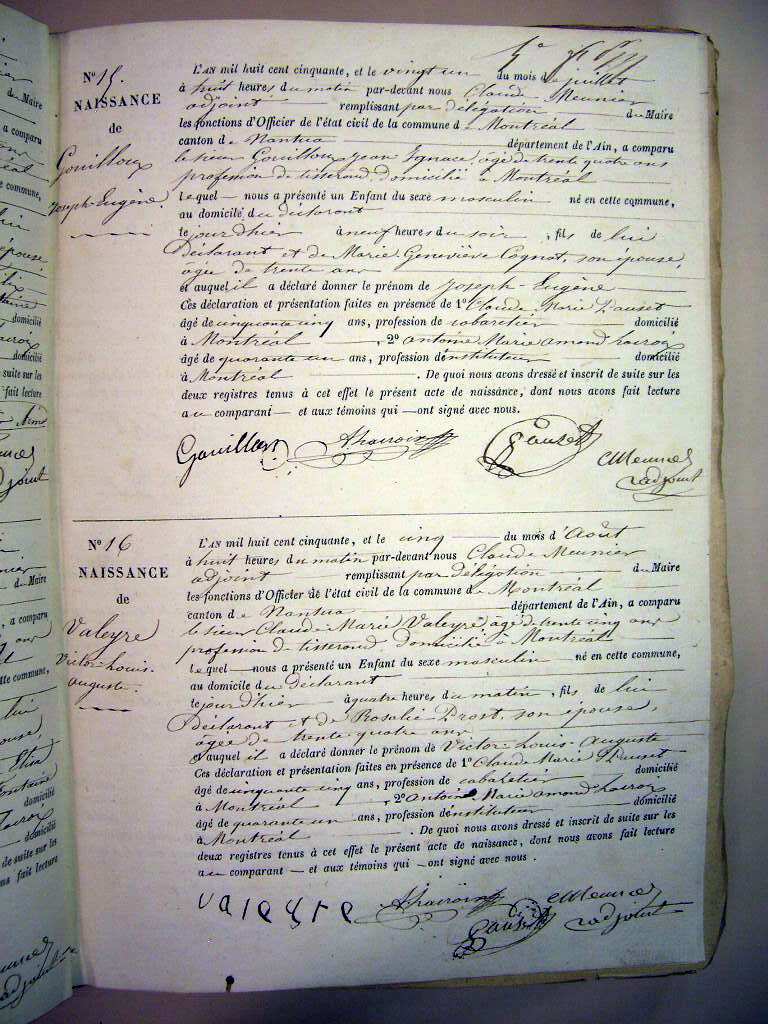 N° 15.
NAISSANCE
de
Gouilloux
Joseph-Eugène.
L'AN mil huit cent cinquante, et le vingt un du mois de juillet
à huit heures du matin par-devant nous Claude Meunier
adjoint remplissant par délégation du Maire
les fonctions d'Officier de l'état civil de la commune de Montréal
canton de Nantua département de l'Ain, a comparu
le sieur Gouilloux jean Ignace, âgé de trente quatre ans
profession de tisserand domicilié à Montréal
lequel nous a présenté un Enfant du sexe masculin né en cette commune,
au domicile du déclarant
le jour d'hier à neuf heures du soir, fils de lui
Déclarant et de Marie Geneviève Cognat, son épouse,
âgée de trente ans
et auquel il a déclaré donner le prénom de Joseph-Eugène
Ces déclaration et présentation faites en présence de 1° Claude Marie
âgé de cinquante cinq ans, profession de cabaretier domicilié
à Montréal, 2° antoine Marie amond
âgé de quarante un ans, profession d'instituteur domicilié
à Montréal. De quoi nous avons dressé et inscrit de suite sur les
deux registres tenus à cet effet le présent acte de naissance, dont nous avons fait lecture
au comparant et aux témoins qui ont signé avec nous.
Gouilloux
CMeunier
adjoint
N° 16
NAISSANCE
de
Valeyre
Victor-Louis-
Auguste.
L'AN mil huit cent cinquante, et le cinq du mois d'Août
à huit heures du matin par-devant nous Claude Meunier
adjoint remplissant par délégation du Maire
les fonctions d'Officier de l'état civil de la commune de Montréal
canton de Nantua département de l'Ain, a comparu
le sieur Claude Marie Valeyre, âgé de trente cinq ans
profession de tisserand domicilié à Montréal
lequel nous a présenté un Enfant du sexe masculin né en cette commune,
au domicile du déclarant
le jour d'hier à quatre heures du matin, fils de lui
Déclarant et de Rosalie Drost, son épouse,
âgée de trente quatre ans
et auquel il a déclaré donner le prénom de Victor-Louis-Auguste
Ces déclaration et présentation faites en présence de 1° Claude Marie
âgé de cinquante cinq ans, profession de cabaretier domicilié
à Montréal, 2° antoine Marie amond
âgé de quarante un ans, profession d'instituteur domicilié
à Montréal. De quoi nous avons dressé et inscrit de suite sur les
deux registres tenus à cet effet le présent acte de naissance, dont nous avons fait lecture
au comparant et aux témoins qui ont signé avec nous.
valeyre
CMeunier
adjoint